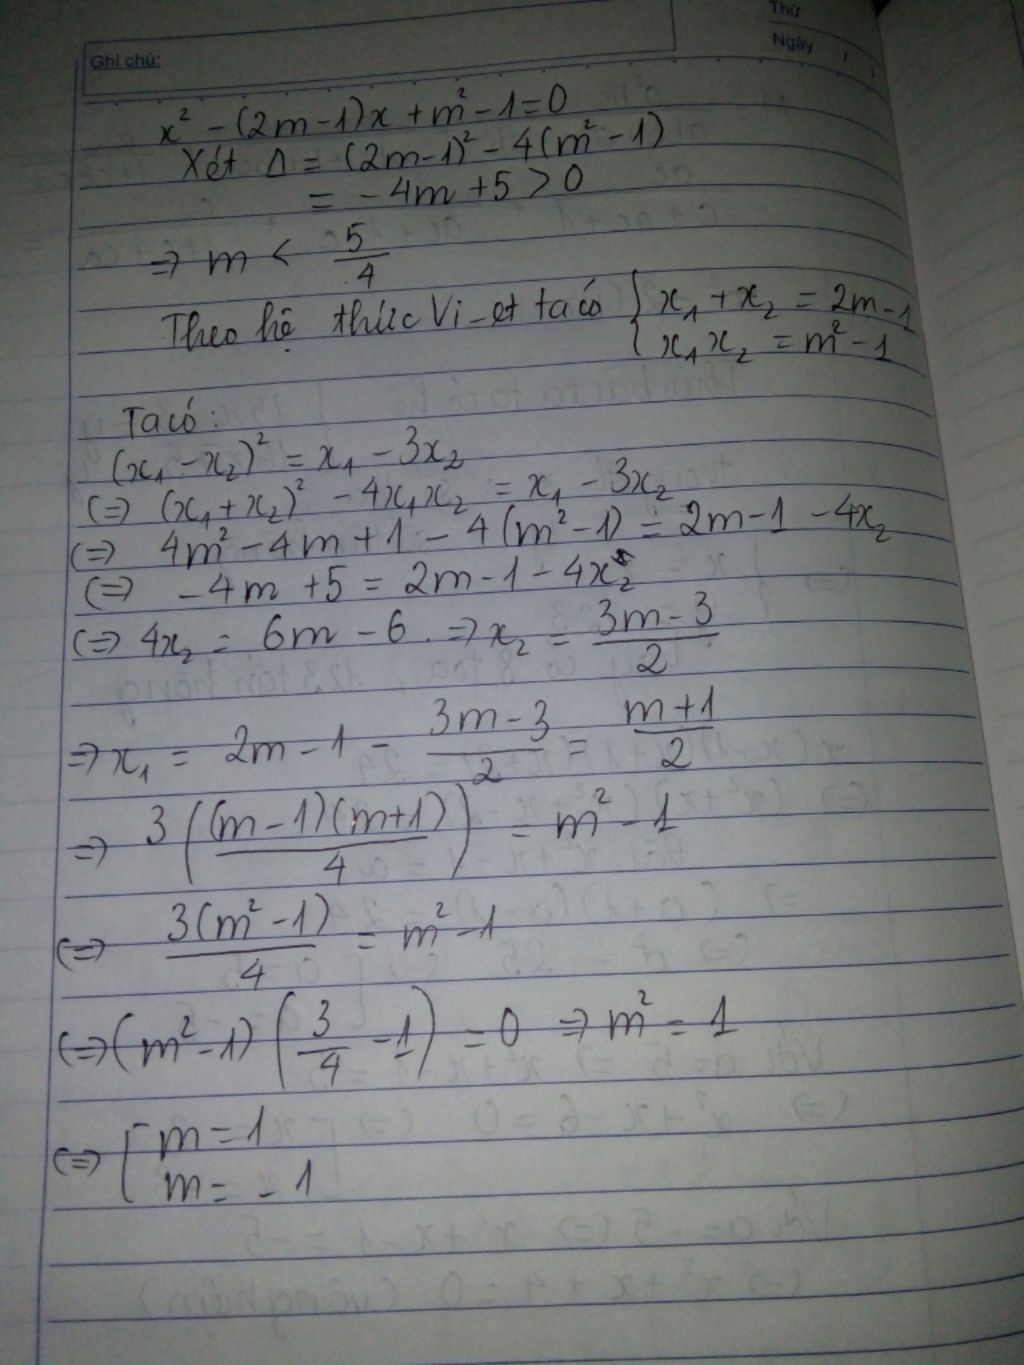 Thứ
Ngày
Ghi chú:
x² - (2m-1)x + m² - 1 = 0
Xét Δ = (2m-1)² - 4(m² - 1)
= -4m + 5 > 0
⇒ m < 5/4
Theo hệ thức Vi-et ta có { x₁ + x₂ = 2m - 1
x₁x₂ = m² - 1
Ta có:
(x₁ - x₂)² = x₁ - 3x₂
(⇒) (x₁ + x₂)² - 4x₁x₂ = x₁ - 3x₂
(⇒) 4m² - 4m + 1 - 4(m² - 1) = 2m - 1 - 4x₂
(⇒) -4m + 5 = 2m - 1 - 4x₂
(⇒) 4x₂ = 6m - 6. ⇒ x₂ = (3m - 3)/2
⇒ x₁ = 2m - 1 - (3m - 3)/2 = (m + 1)/2
⇒ 3((m - 1)(m + 1)/4) = m² - 1
(⇒) 3(m² - 1)/4 = m² - 1
(⇒) (m² - 1)(3/4 - 1) = 0 ⇒ m² = 1
(⇒) [ m = 1
m = -1